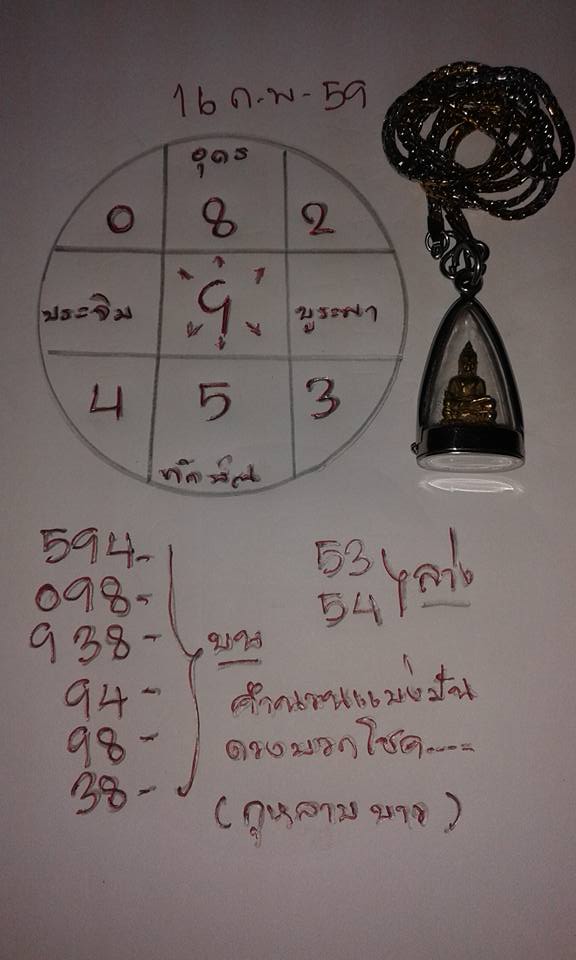 16 ก.พ. 59
อุดร
0 8 2
ประจิม 9 บูรพา
4 5 3
ทักษิณ
594-
098-
938-
94-
98-
38-
บน
53
54
ล่าง
คำนวนแบ่งปัน
ดวงมากโชค....
(กุหลาบขาว)